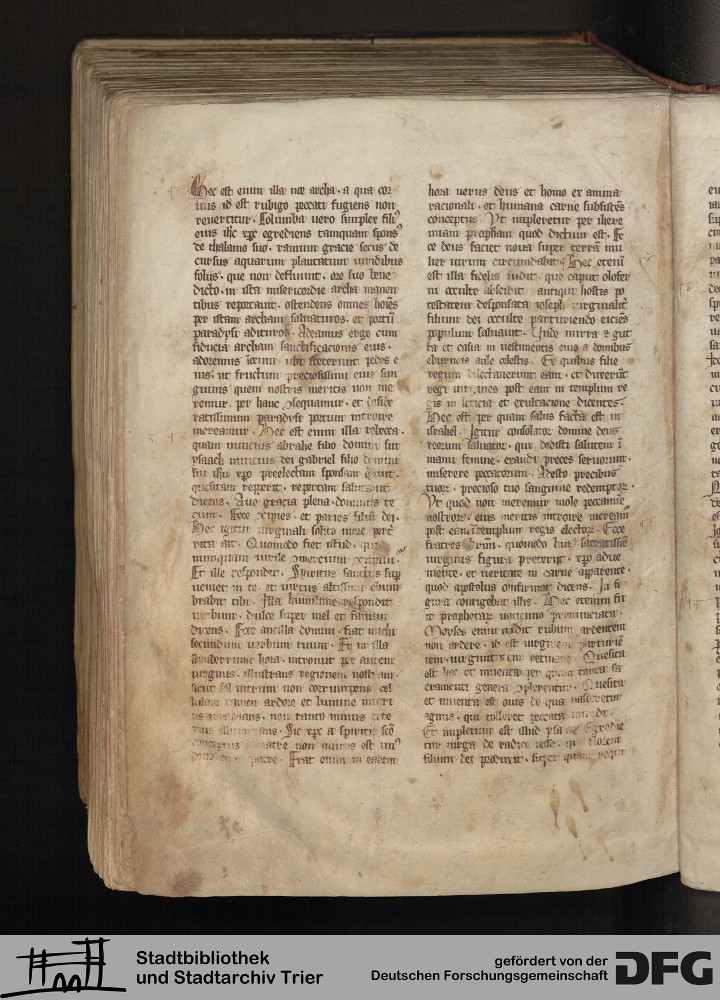 Hec est enim illa noe archa · a qua cor
uus id est rubigo peccati fugiens non
reuertitur · Columba uero simplex fili⁹
eius ihc xpc egrediens tamquam spons⁹
de thalamo suo · ramum gracie secus de
cursus aquarum plantatum uiridibus
foliis · que non defluunt · ore suo bene
dicto · in ista misericordie archa manen
tibus reportauit · ostendens omnes hoīes
per istam archam saluaturos · et portū
paradysi adituros · Adeamus ergo cum
fiducia archam sanctificacionis eius ·
adoremus locum · ubi steterunt pedes e
ius · ut fructum preciosissimi eius san
guinis quem nostris meritis non me
remur · per hanc sequamur · et
ratissimum paradysi portum introire
mereamur · Hec est enim illa rebecca ·
quam nuncius abrahe filio domini sui
ysaach nuncius dei gabriel filio domini
sui ihu xpo preelectam sponsam
quesitam repperit · repertam salutauit
dicens · Aue gracia plena · dominus te
cum · Ecce et paries filiū dei ·
Hec igitur uirginali solito more
rita ait · Quomodo fiet istud ·
numquam uirile
Et ille respondit · Spiritus sanctus sup
ueniet in te · et uirtus altissimi obum
brabit tibi · Illa humilime respondit
uerbum · dulce super mel et fauum
dicens · Ecce ancilla domini · fiat michi
secundum uerbum tuum · Et in illa
hora · introiuit per aurem
uirginis · illustrans regionem nostram
sicut sol uitrum non corrumpens
tamen ardore et lumine
non tanto minus
Sic xpc a spiritu scō
conceptus matre non minus est
patre · Erat enim in eadem
hora uerus deus et homo ex anima
racionali · et humana carne subsistēs
conceptus · Vt impleretur per ihere
miam prophetam quod dictum est · Ec
ce deus faciet noua super terrā mu
lier uirum circumdabit · Hec etenī
est illa fidelis iudit · que caput olofer
ni occulte abscidit · antiqui hostis po
testatem desponsata ioseph uirginalit
filium dei occulte parturiendo eiciēs
populum saluauit · Unde mirra et gut
ta et casia in uestimentis eius a domibus
eburneis aule celestis · Ex quibus filie
regum delectauerunt eam · et duxerūt
regi uirgines post eam in templum re
gis in leticia et exultacione dicentes ·
Hec est per quam salus facta est in
israhel · Igitur consolator domine deus
reorum saluator · qui dedisti salutem ī
manu femine · exaudi preces seruorum ·
miserere peccatorum · Adesto precibus
tuor · precioso tuo sanguine redemptor ·
Vt quod non meremur mole peccamine
nostror · eius meritis introire meream
post eam templum regis elector · Ecce
fratres · quomodo huius sacratissie
uirginis figura preterit · xpo adue
niente · et ueritate in carne apparente ·
quod apostolus confirmat dicens · In fi
gura contigebat illis · Hec etenim fu
it prophetarum uaticinio prenunciata ·
Moyses enim uidit rubum ardentem
non ardere · id est uirginem parturiē
tem · uirginitatem retinere · Quesita
est hec et inuenta per quam tanta sa
cramenti genera · Quesita
et inuenta est ouis de qua nasceretur
agnus · qui tolleret peccata mundi ·
Et impletum est illud ysaie Egredie
tur uirga de radice iesse · que florem
filium dei produxit · super quam
Stadtbibliothek
und Stadtarchiv Trier
gefördert von der
Deutschen Forschungsgemeinschaft
DFG